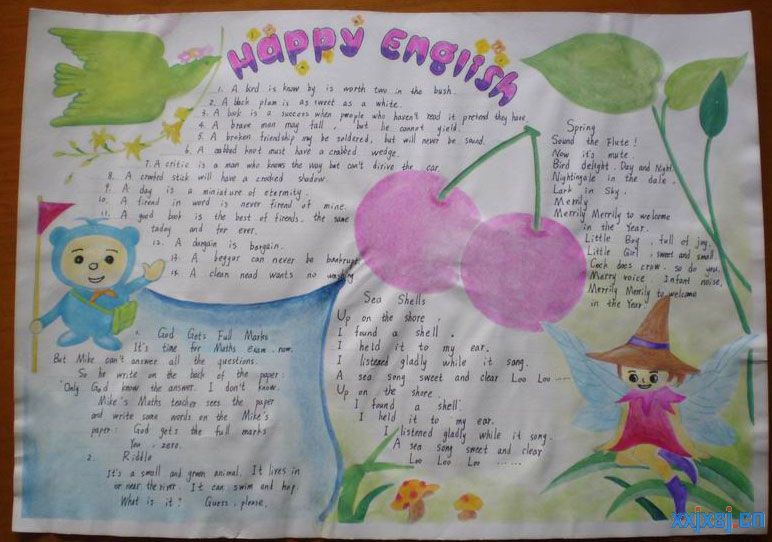 Happy English
1. A bird is know by is worth two in the bush.
2. A black plum is as sweet as a white.
3. A book is a success when people who haven't read it pretend they have.
4. A brave man may fall, but he cannot yield.
5. A broken friendship may be soldered, but will never be sound.
6. A crabbed knot must have a crabbed wedge.
7. A critic is a man who knows the way but can't dirive the car.
8. A crooked stick will have a crooked shadow.
9. A day is a miniature of eternity.
10. A firend in word is never firend of mine.
11. A good book is the best of firends. the same
today and for ever.
12. A dangain is bargain.
13. A beggar can never be bankrupt
14. A clean nead wants no washing
Spring
Sound the Flute!
Now it's mute.
Bird delight. Day and Night.
Nightingale in the dale,
Lark in Sky.
Merrily
Merrily Merrily to welcome
in the Year.
Little Boy. full of joy.
Little Girl, sweet and small.
Cock does crow. so do you.
Merry voice. Infant noise.
Merrily Merrily to welcome
in the Year!
Sea Shells
Up on the shore,
I found a shell.
I held it to my ear.
I listened gladly while it sang.
A sea song sweet and clear Loo Loo
Up on the shore
I found a shell
I held it to my ear.
I listened gladly while it song.
A sea song sweet and clear
Loo Loo Loo ......
1. God Gets Full Marks
It's time for Maths exam now.
But Mike can't answer all the questions.
So he write on the back of the paper:
Only God know the answer. I don't know.
Mike's Maths teacher sees the paper
and write some words on the Mike's
paper: God gets the full marks
You, zero.
2. Riddle
It's a small and green animal. It lives in
or near the river. It can swim and hop.
What is it? Guess, please.
xxjxsj.cn